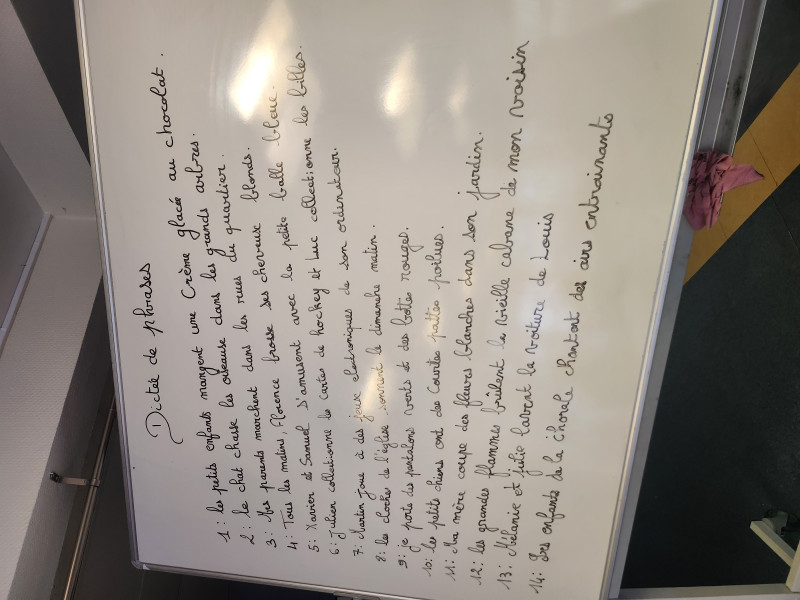 Dictée de phrases
1: les petits enfants mangent une Crème glacée au chocolat.
2: le chat chasse les oiseause dans les grands arbres.
3: Mes parents marchent dans les rues du quartier.
4: Tous les matins, Florence brosse ses cheveuse blonds.
5: Xavier et Samuel s'amusent avec la petite balle bleue.
6: Julien collectionne les Cartes de hockey et Luc collectionne les billes.
7: Martin joue à des jeuse électroniques de son ordinateur.
8: les cloches de l'église sonnent le dimanche matin.
9: je porte des pantalons verts et des bottes rouges.
10: les petits chiens ont des Courtes pattes poilues.
11: Ma mère coupe des fleurs blanches dans son jardin.
12: les grandes flammes brûlent la vieille cabane de mon voisin
13: Mélanie et julie lavent la voiture de Louis
14: Les enfants de la chorale chantent des airs entrainants